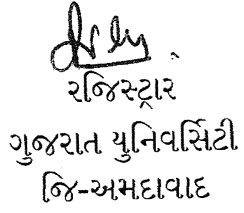 રજિસ્ટ્રાર
ગુજરાત યુનિવર્સિટી
જિ-અમદાવાદ